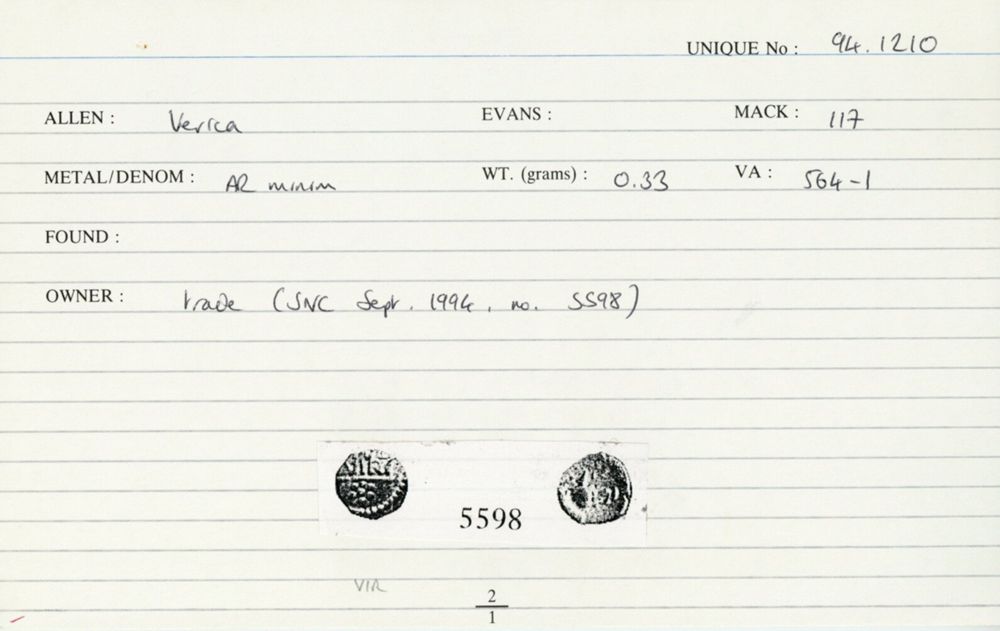 UNIQUE No : 94.1210
ALLEN : Verica EVANS : MACK : 117
METAL/DENOM : AR minim WT. (grams) : 0.33 VA : 564-1
FOUND :
OWNER : trade (SNC Sept. 1994, no. 5598)
5598
VIR
2
1